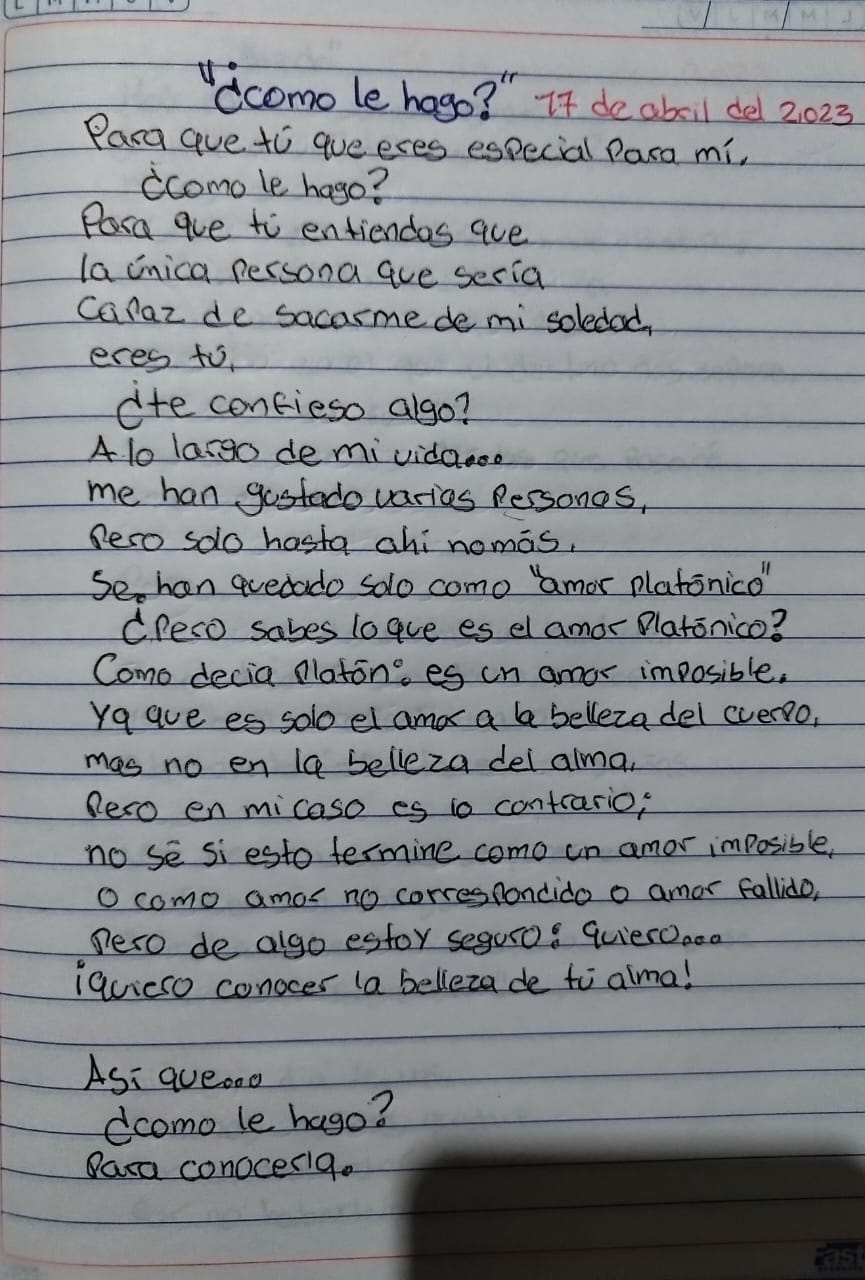 "¿como le hago?" 17 de abril del 2,023
Para que tú que eres especial para mí,
¿como le hago?
Para que tú entiendas que
la única persona que sería
capaz de sacarme de mi soledad,
eres tú,
¿te confieso algo?
A lo largo de mi vida....
me han gustado varias personas,
pero solo hasta ahí nomás,
se han quedado solo como "amor platónico"
¿Pero sabes lo que es el amor Platónico?
Como decia platón: es un amor imposible.
Ya que es solo el amor a la belleza del cuerpo,
mas no en la belleza del alma,
Pero en mi caso es lo contrario;
no sé si esto termine como un amor imposible,
o como amor no correspondido o amor fallido,
pero de algo estoy seguro: quiero....
¡quiero conocer la belleza de tú alma!
Así que....
¿como le hago?
para conocerla.